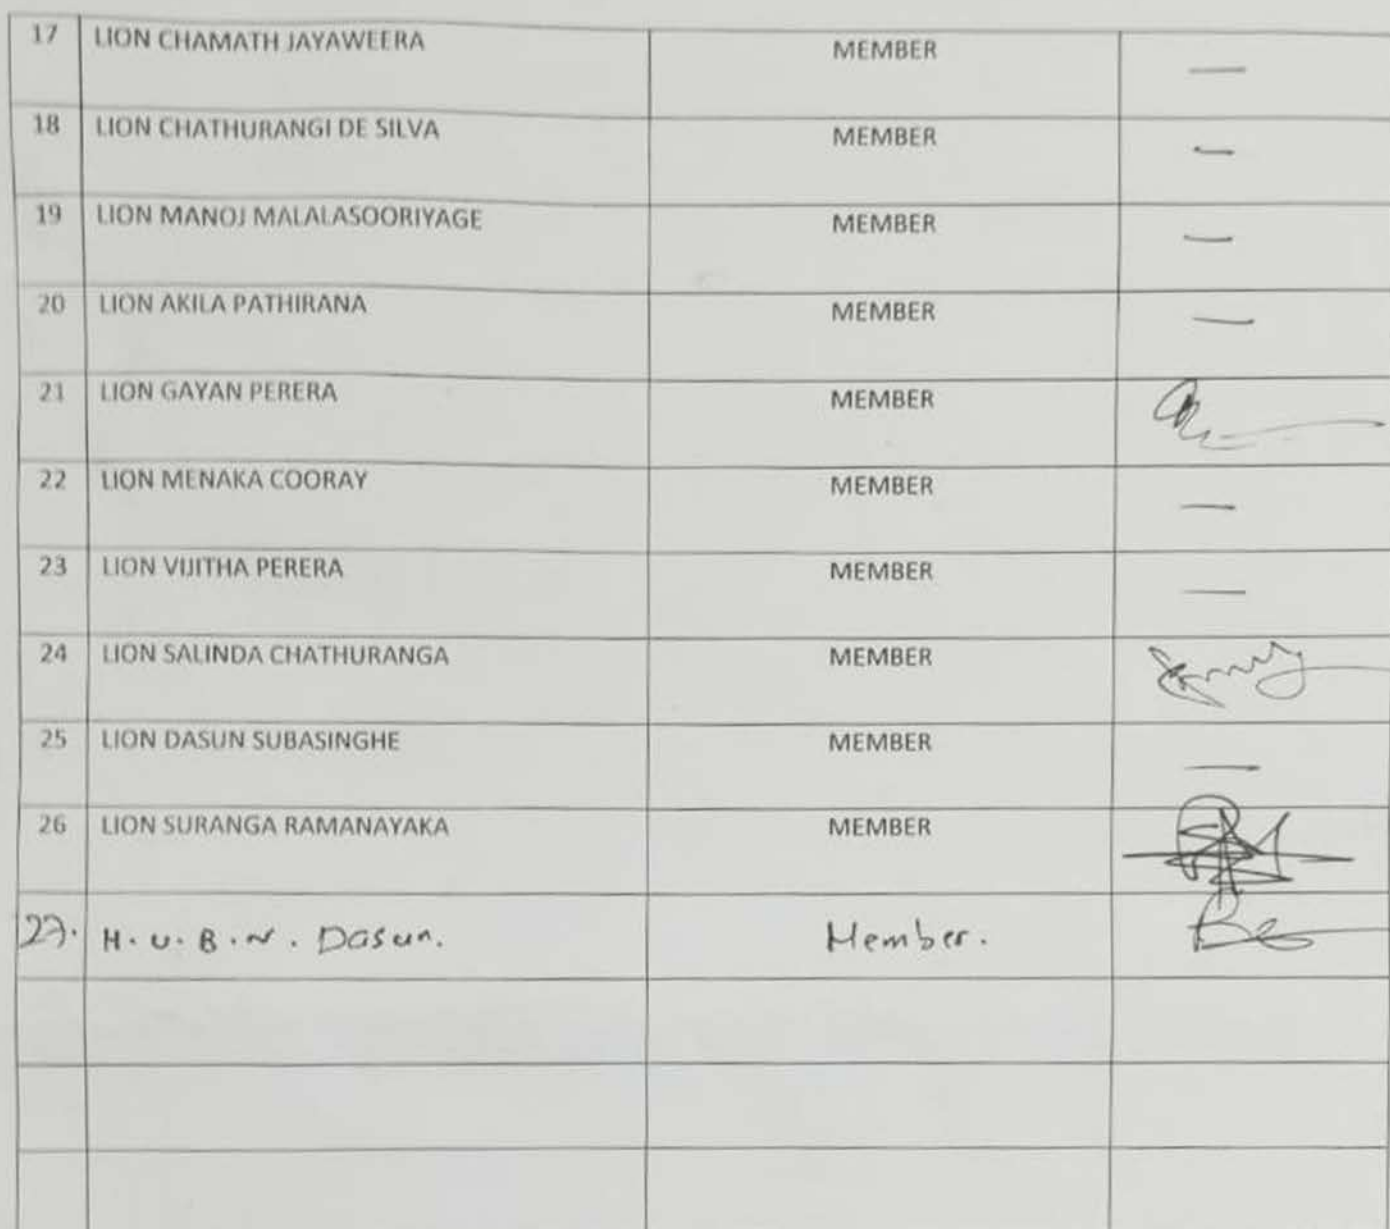 17 LION CHAMATH JAYAWEERA MEMBER —
18 LION CHATHURANGI DE SILVA MEMBER —
19 LION MANOJ MALALASOORIYAGE MEMBER —
20 LION AKILA PATHIRANA MEMBER —
21 LION GAYAN PERERA MEMBER
22 LION MENAKA COORAY MEMBER —
23 LION VIJITHA PERERA MEMBER —
24 LION SALINDA CHATHURANGA MEMBER
25 LION DASUN SUBASINGHE MEMBER —
26 LION SURANGA RAMANAYAKA MEMBER
27. H.U.B.N. Dasun. Member.